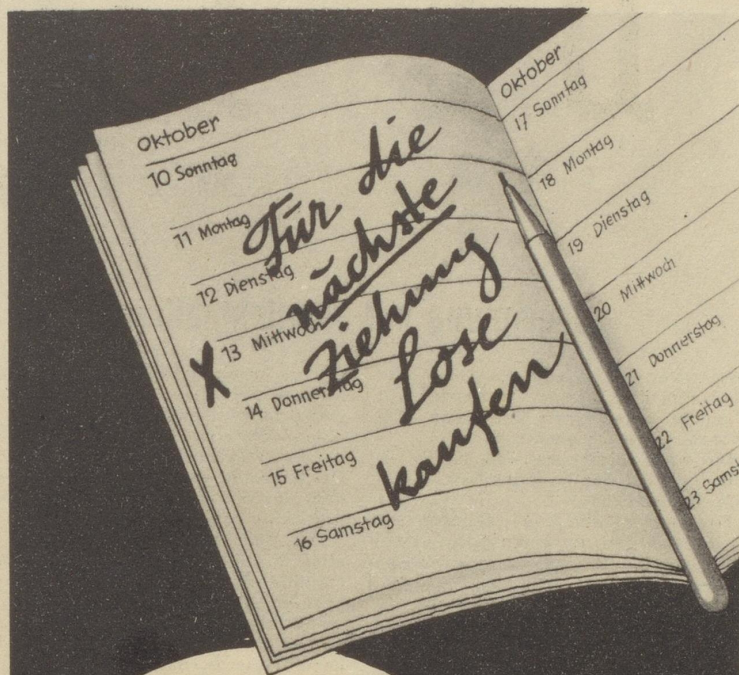 Oktober
10 Sonntag
11 Montag
12 Dienstag
13 Mittwoch
14 Donnerstag
15 Freitag
16 Samstag
X
Für die
nächste
Ziehung
Lose
kaufen
Oktober
17 Sonntag
18 Montag
19 Dienstag
20 Mittwoch
21 Donnerstag
22 Freitag
23 Samst